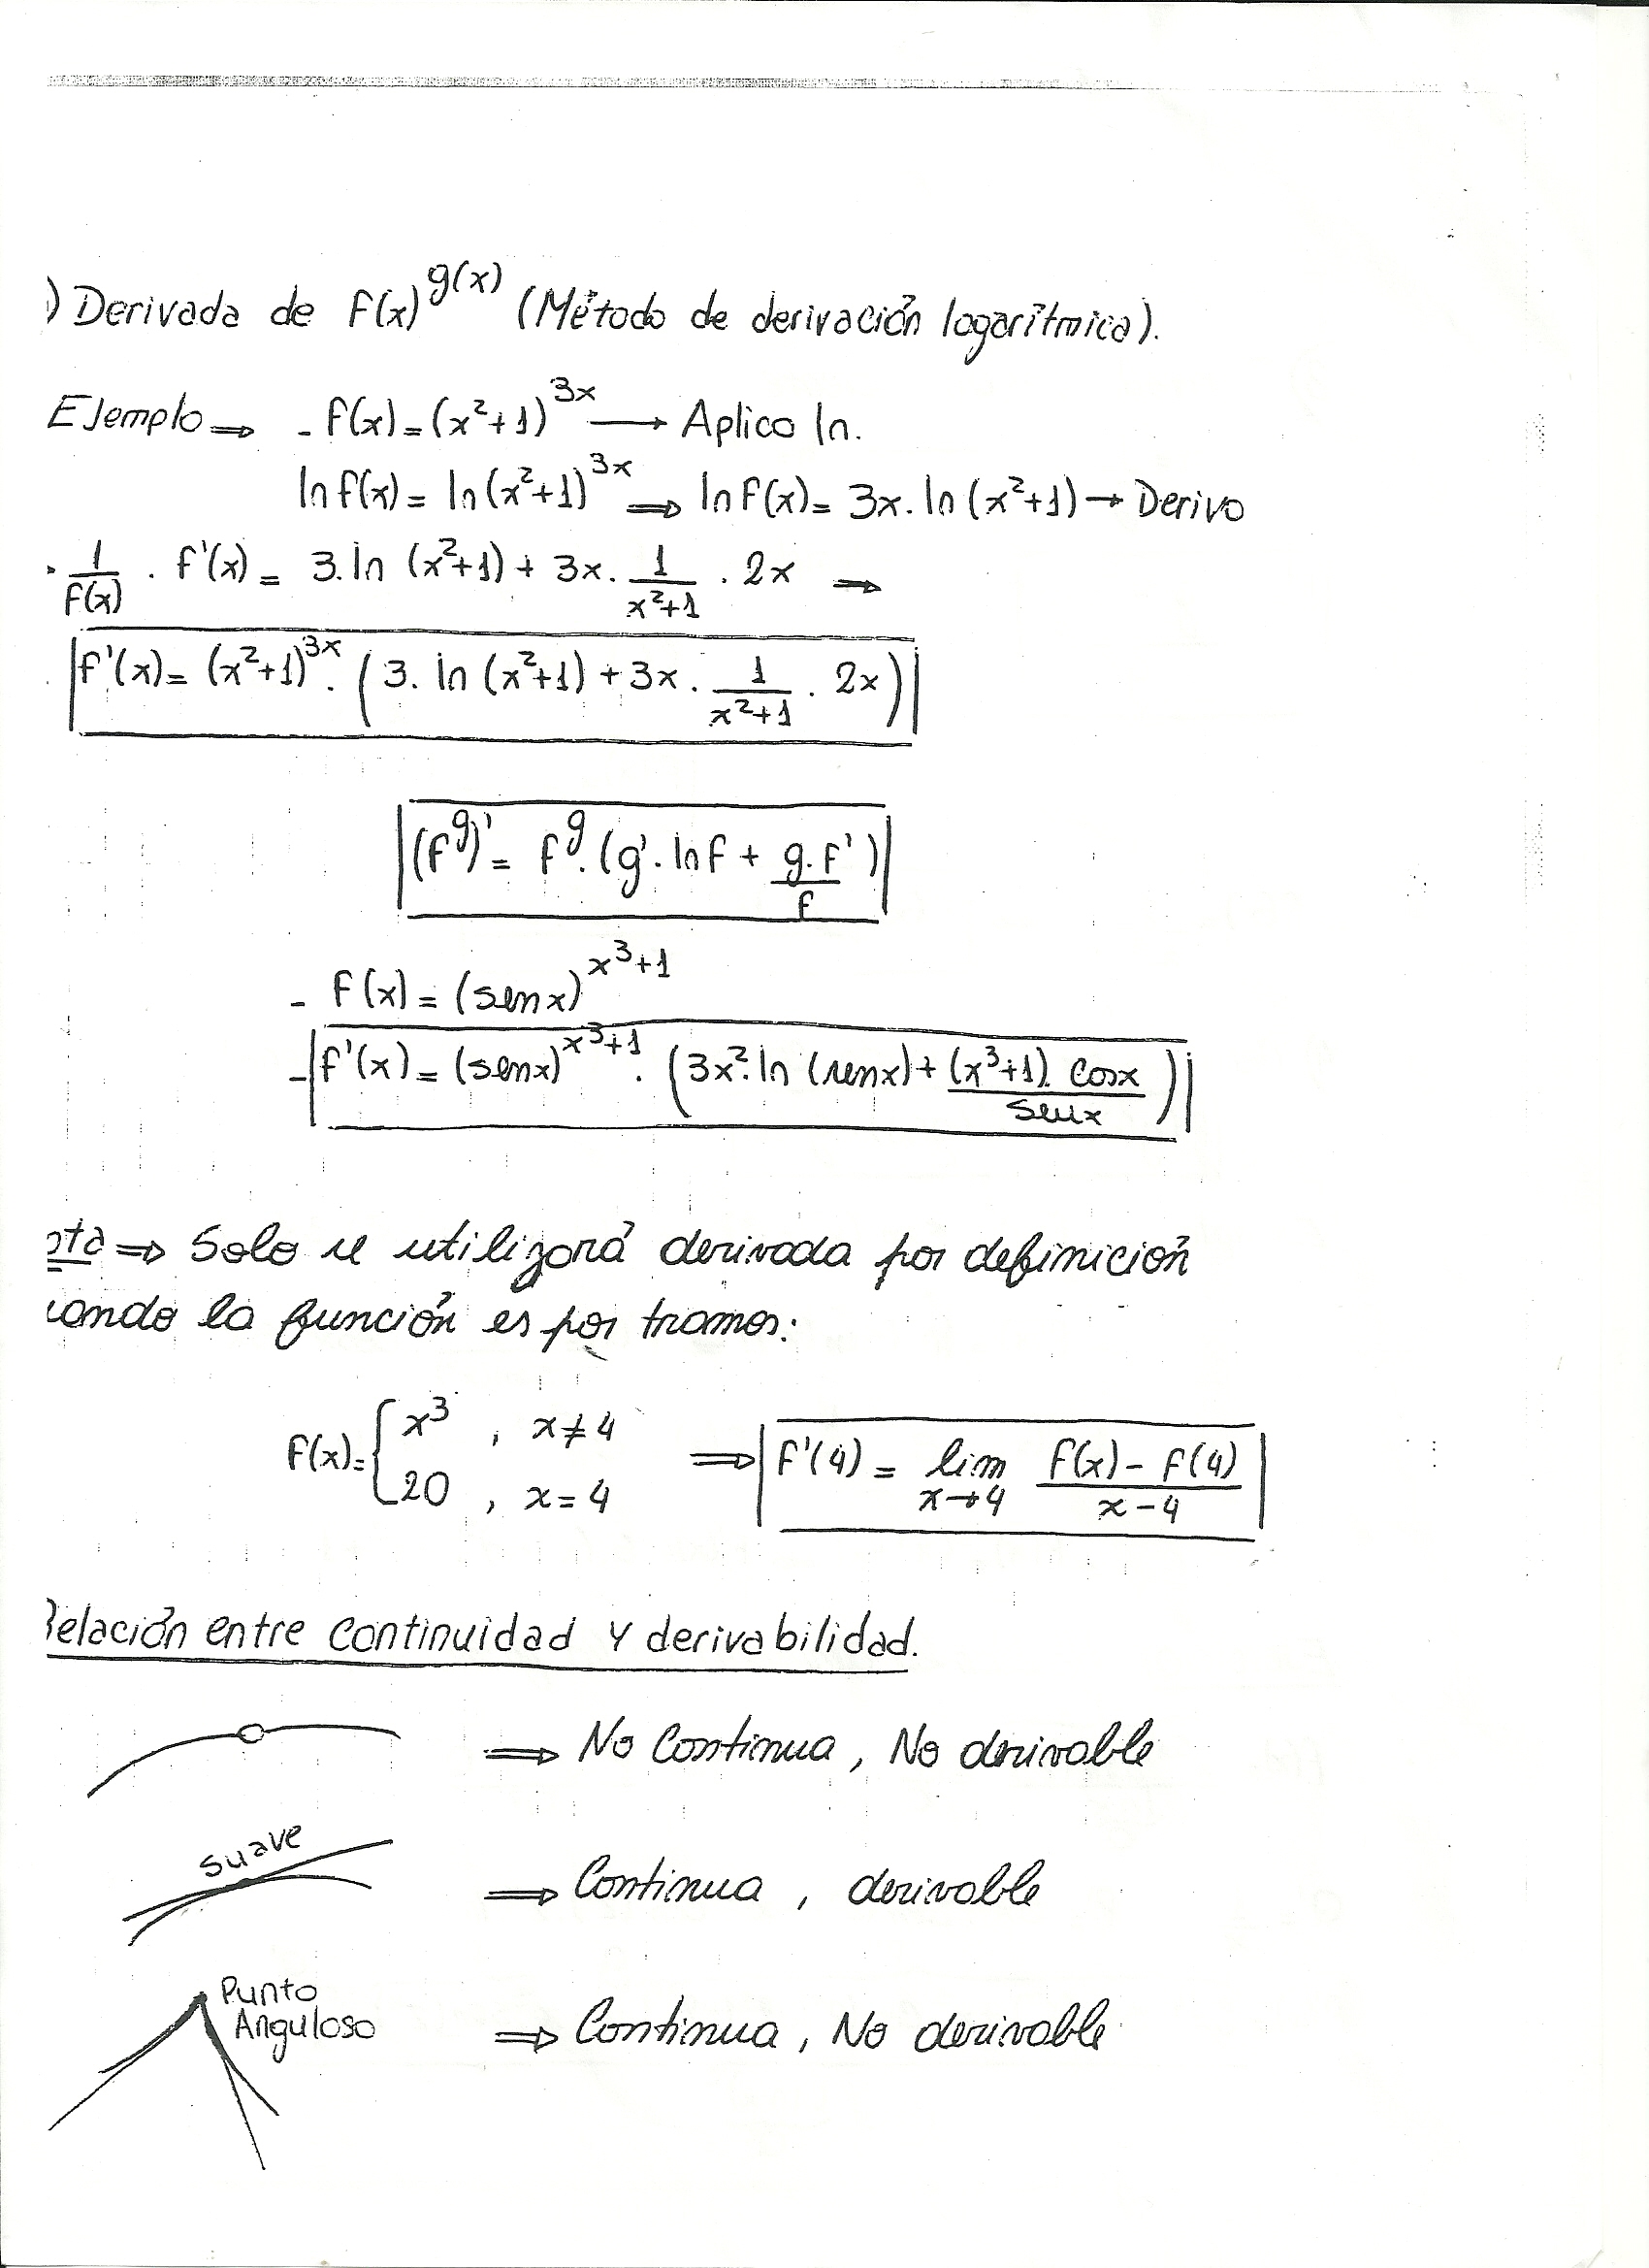 ) Derivada de F(x)^g(x) (Método de derivación logarítmica).
Ejemplo ⇒ - F(x) = (x²+1)^3x → Aplico ln.
ln F(x) = ln (x²+1)^3x ⇒ ln F(x) = 3x . ln (x²+1) → Derivo
. 1/F(x) . F'(x) = 3. ln (x²+1) + 3x . 1/(x²+1) . 2x ⇒
. F'(x) = (x²+1)^3x . (3. ln (x²+1) + 3x . 1/(x²+1) . 2x)
(F^g)' = F^g . (g' . ln F + g.F'/F)
- F(x) = (sen x)^x³+1
- F'(x) = (sen x)^x³+1 . (3x² . ln (sen x) + (x³+1). cos x / sen x)
ota ⇒ Solo se utilizará derivada por definición
uando la función es por tramos:
F(x) = { x³ , x ≠ 4 ⇒ F'(4) = lim x→4 F(x) - F(4) / x - 4
20 , x = 4
Relación entre continuidad y derivabilidad.
⇒ No Continua, No derivable
Suave
⇒ Continua , derivable
Punto
Anguloso ⇒ Continua, No derivable